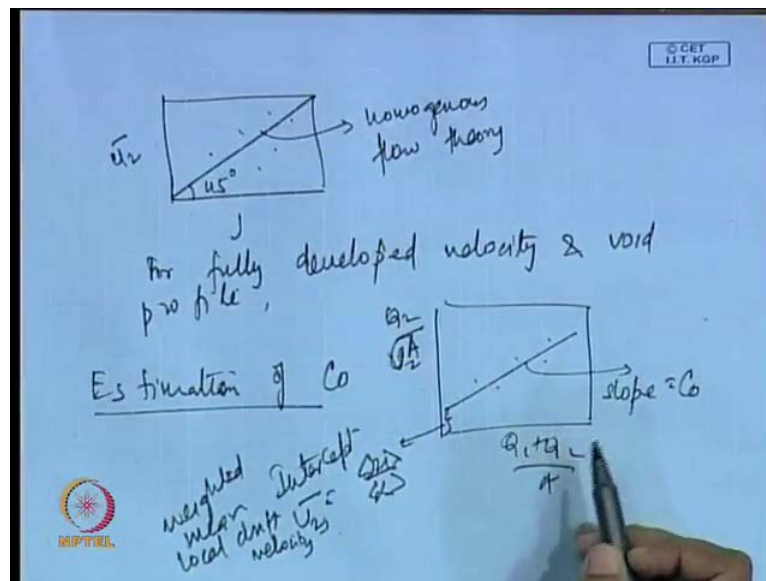 © CET
I.I.T. KGP
ū₂
45°
homogenous
flow theory
J
For fully developed velocity & void
profile,
Estimation of C₀
Q₂
A
slope = C₀
Q₁+Q₂
A
weighted
mean
local drift
velocity
Intercept
NPTEL